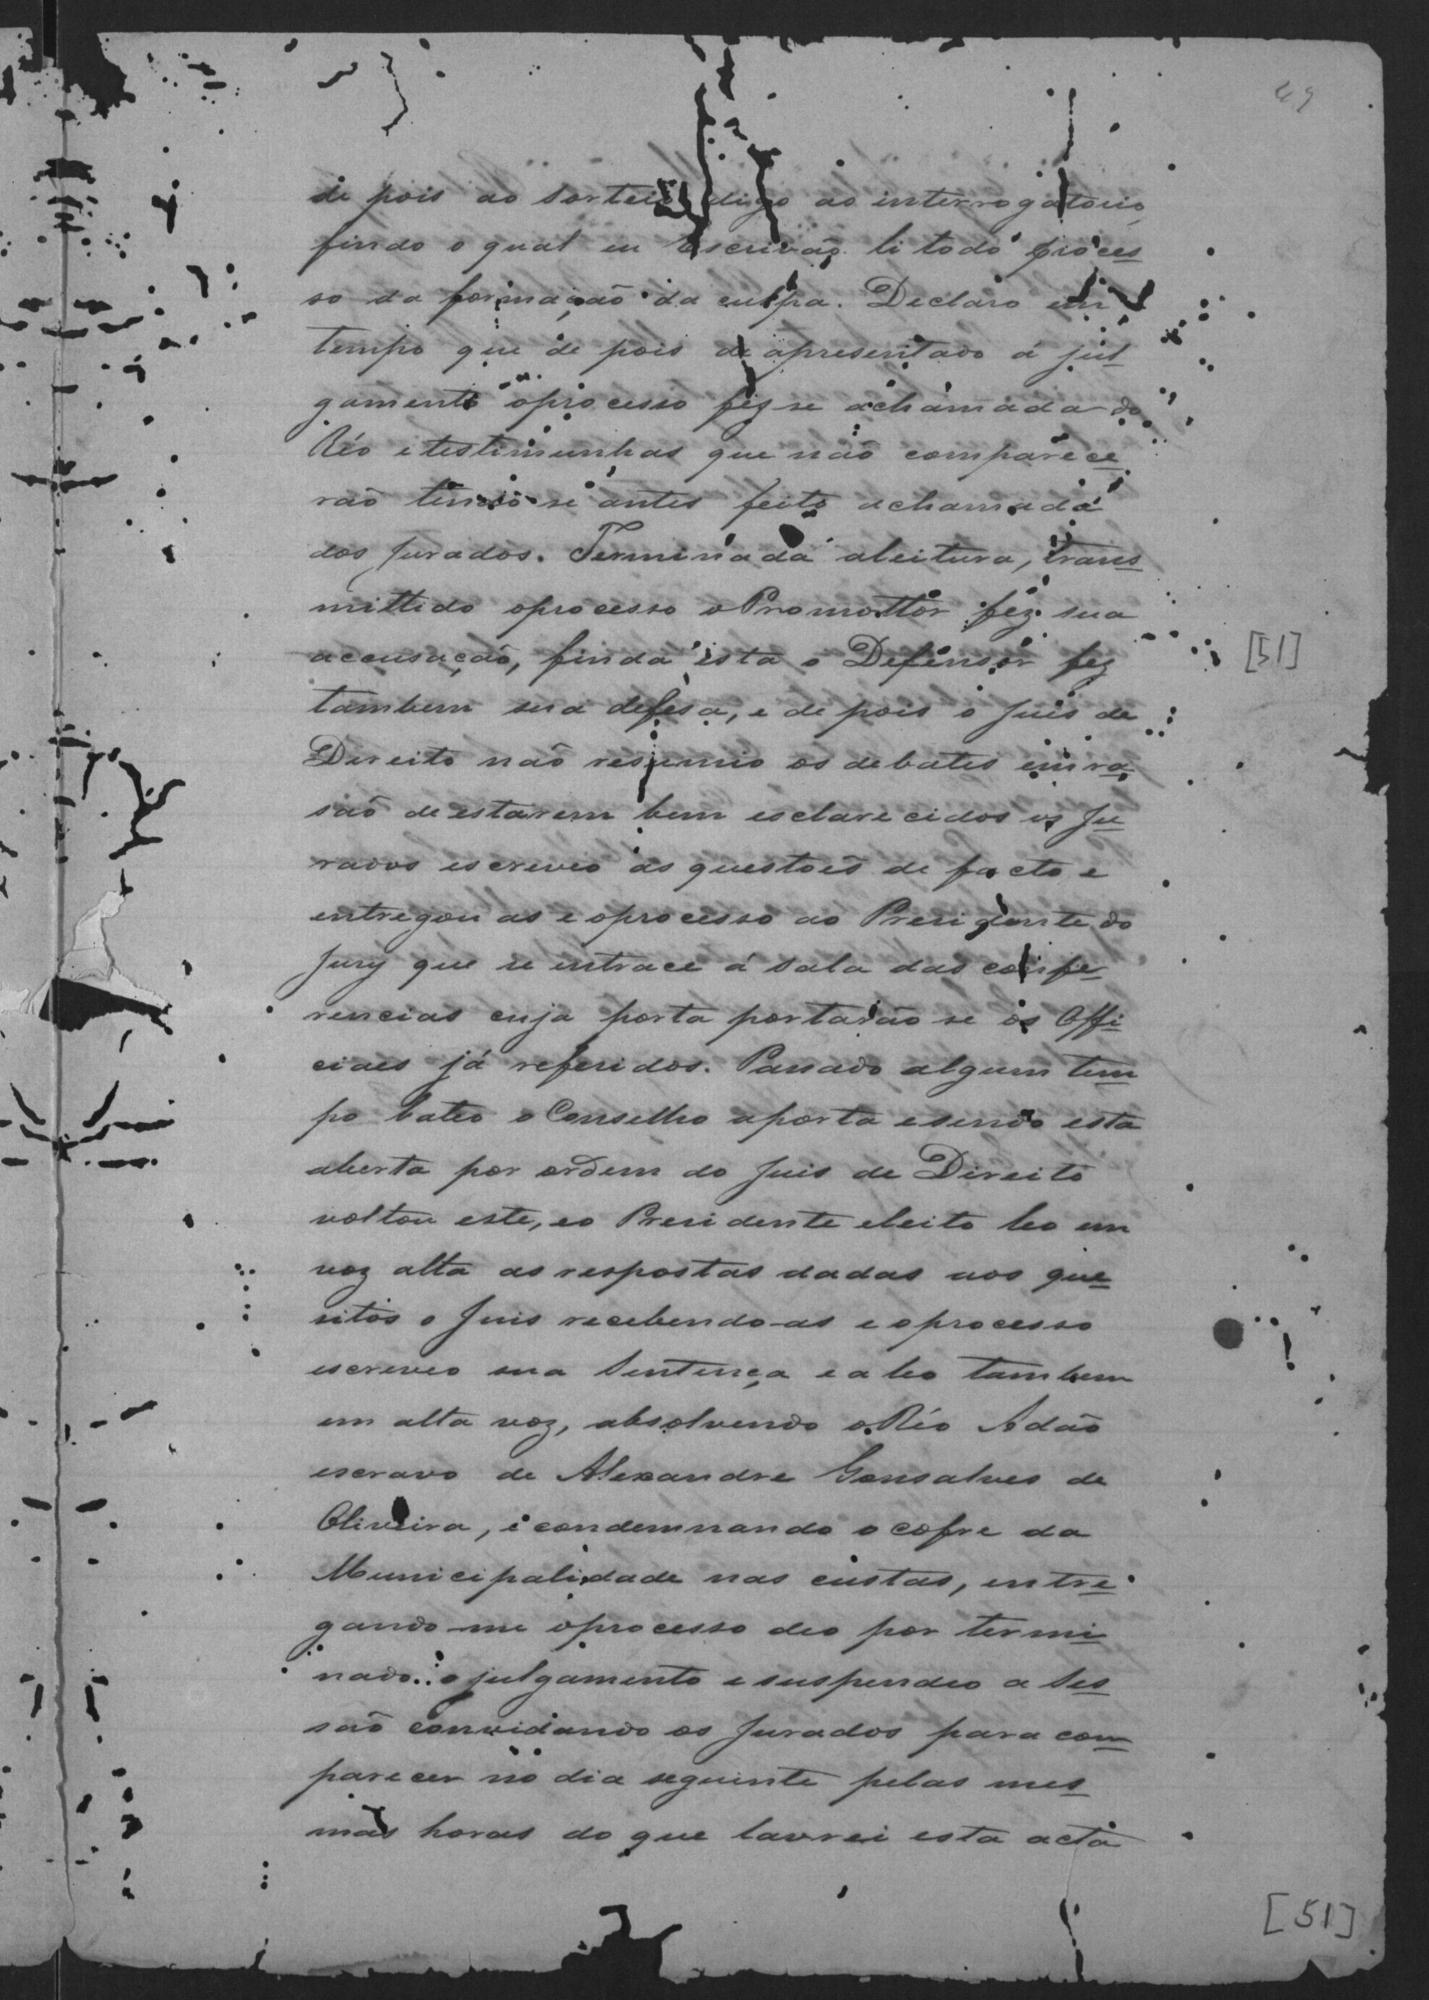 49
de pois ao sorteio digo ao interrogatorio,
findo o qual eu Escrivão li todo proces
so da formação da culpa. Declaro em
tempo que de pois de apresentado á jul
gamento oprocesso fez se achamada do
Réo etestimunhas que não comparece
rão tendo-se antes feito achamada
dos Jurados. Terminada aleitura, trans
mittido oprocesso o Promottor fez sua
accusação, finda esta o Defensor fez
[51]
tambem sua defesa, e de pois o Juis de
Direito não resumio os debates em ra
são de estarem bem esclarecidos os Ju
rados escreveo as questoẽs de facto e
entregou as e oprocesso ao Presidente do
Jury que se entrace á sala das confe
rencias cuja porta portarão se os Offi
ciaes já referidos. Passado algum tem
po bateo o Conselho aporta esendo esta
aberta por ordem do Juis de Direito
voltou este, eo Presidente eleito leo em
voz alta as respostas dadas aos que
sitos o Juis recebendo-as e oprocesso
escreveo sua Sentença e a leo tambem
em alta voz, absolvendo o Réo Adão
escravo de Alexandre Gonsalves de
Oliveira, e condemnando o cofre da
Municipalidade nas custas, entre
gando-me oprocesso deo por termi
nado o julgamento e suspendeo a Ses
são convidando os Jurados para com
parecer no dia seguinte pelas mes
mas horas do que lavrei esta acta
[51]